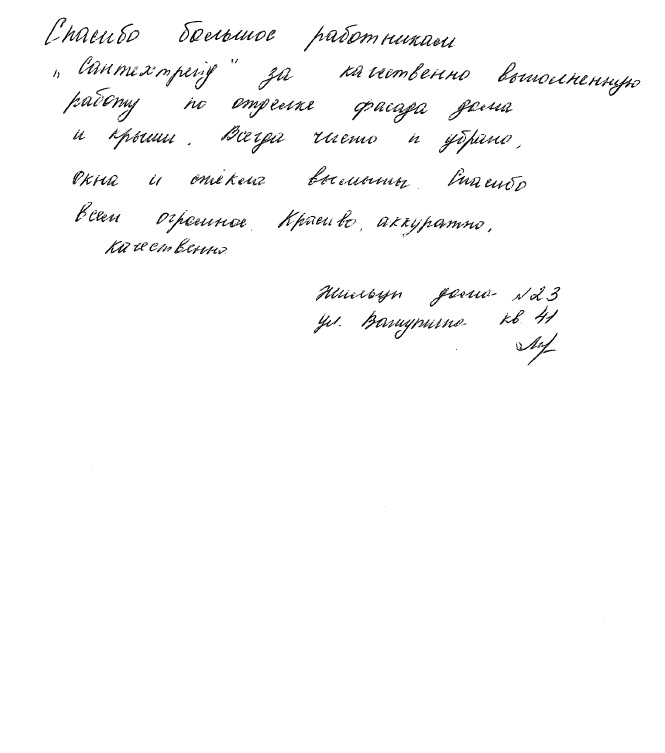 Спасибо большое работникам
„Сантехтрейд" за качественно выполненную
работу по отделке фасада дома
и крыши. Всегда чисто и убрано,
окна и стёкла вымыты. Спасибо
всем огромное. Красиво, аккуратно,
качественно
Жильцы дома №23
ул. кв. 41